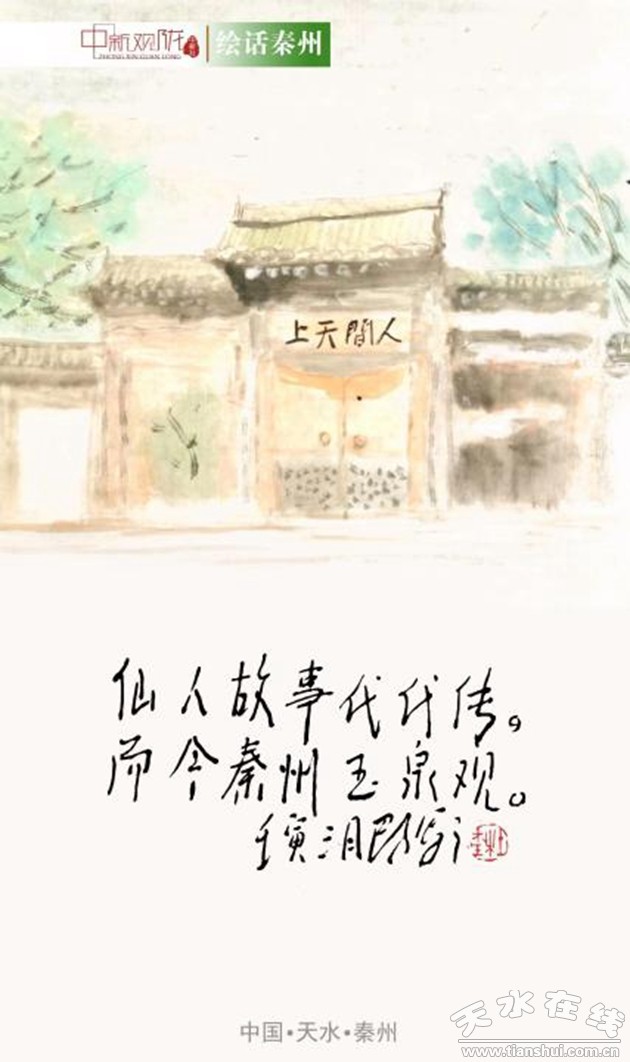 中新观陇
ZHONG XIN GUAN LONG
绘话秦州
上天間人
仙人故事代代传，
而今秦州玉泉观。
壬寅三月
中国·天水·秦州
天水在线
www.tianshui.com.cn